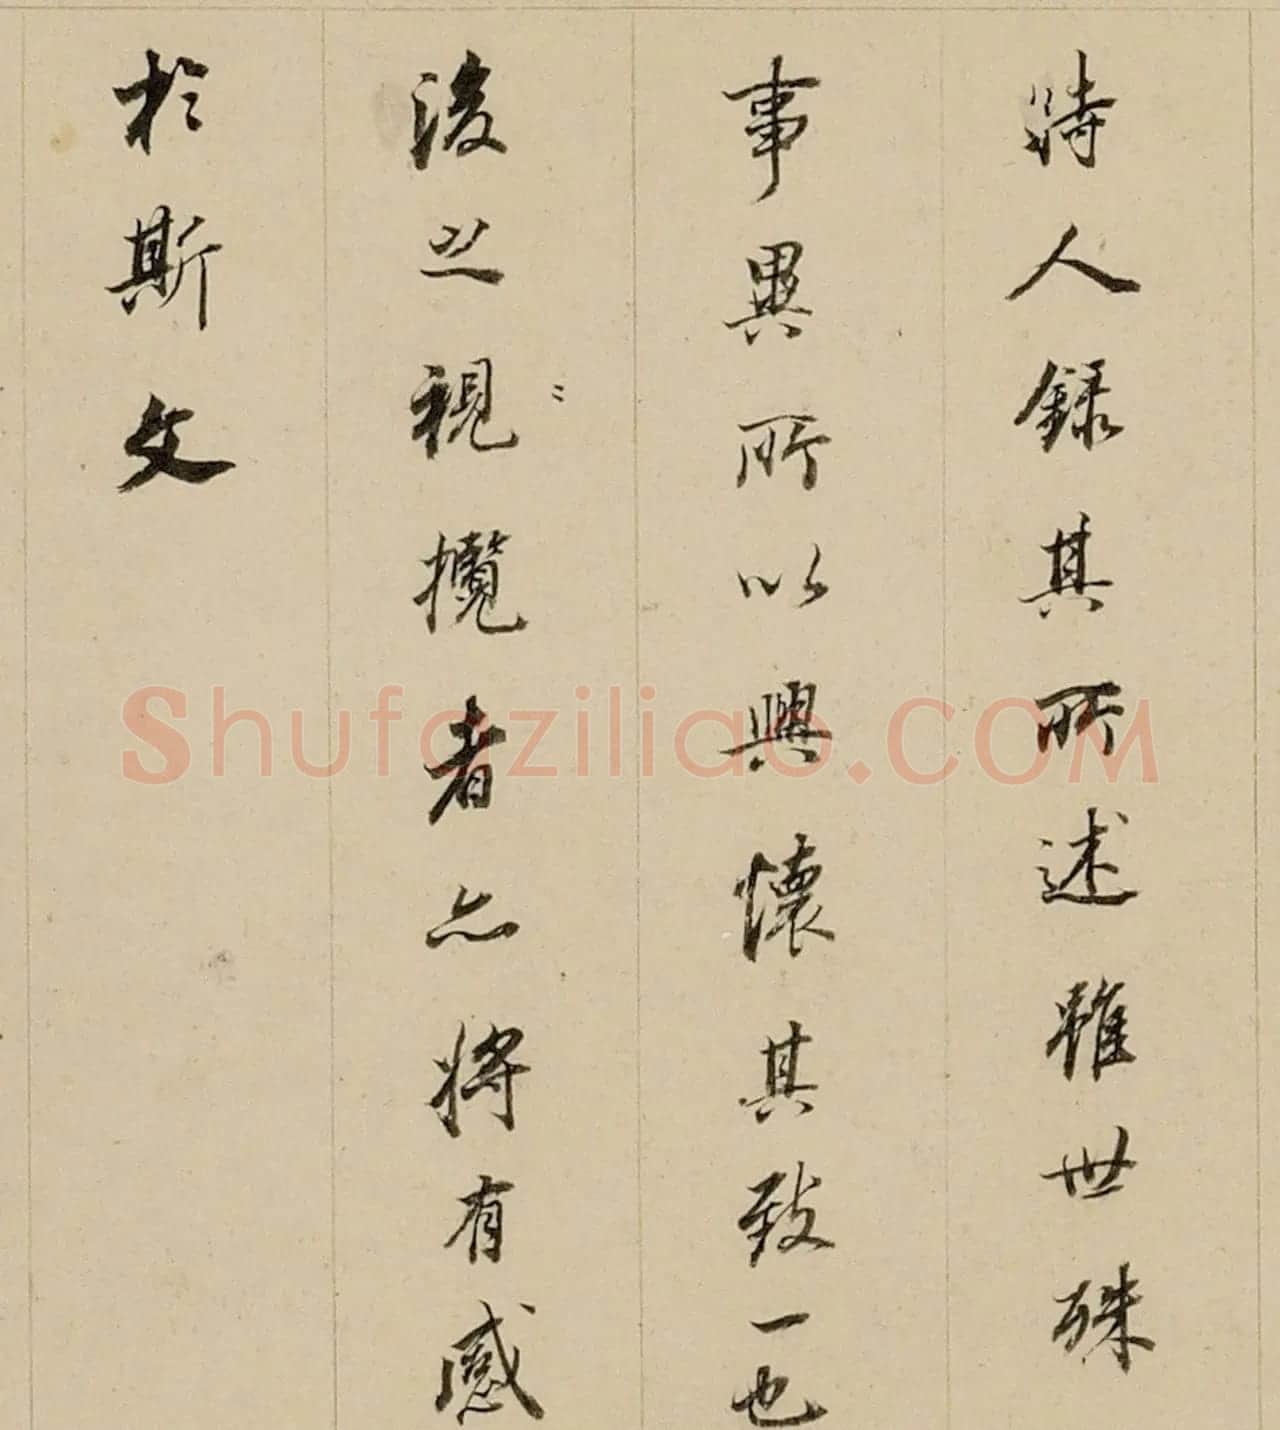 時人録其所述雖世殊
事異所以興懷其致一也
後之視攬者亦將有感
於斯文
Shufaziliao.COM